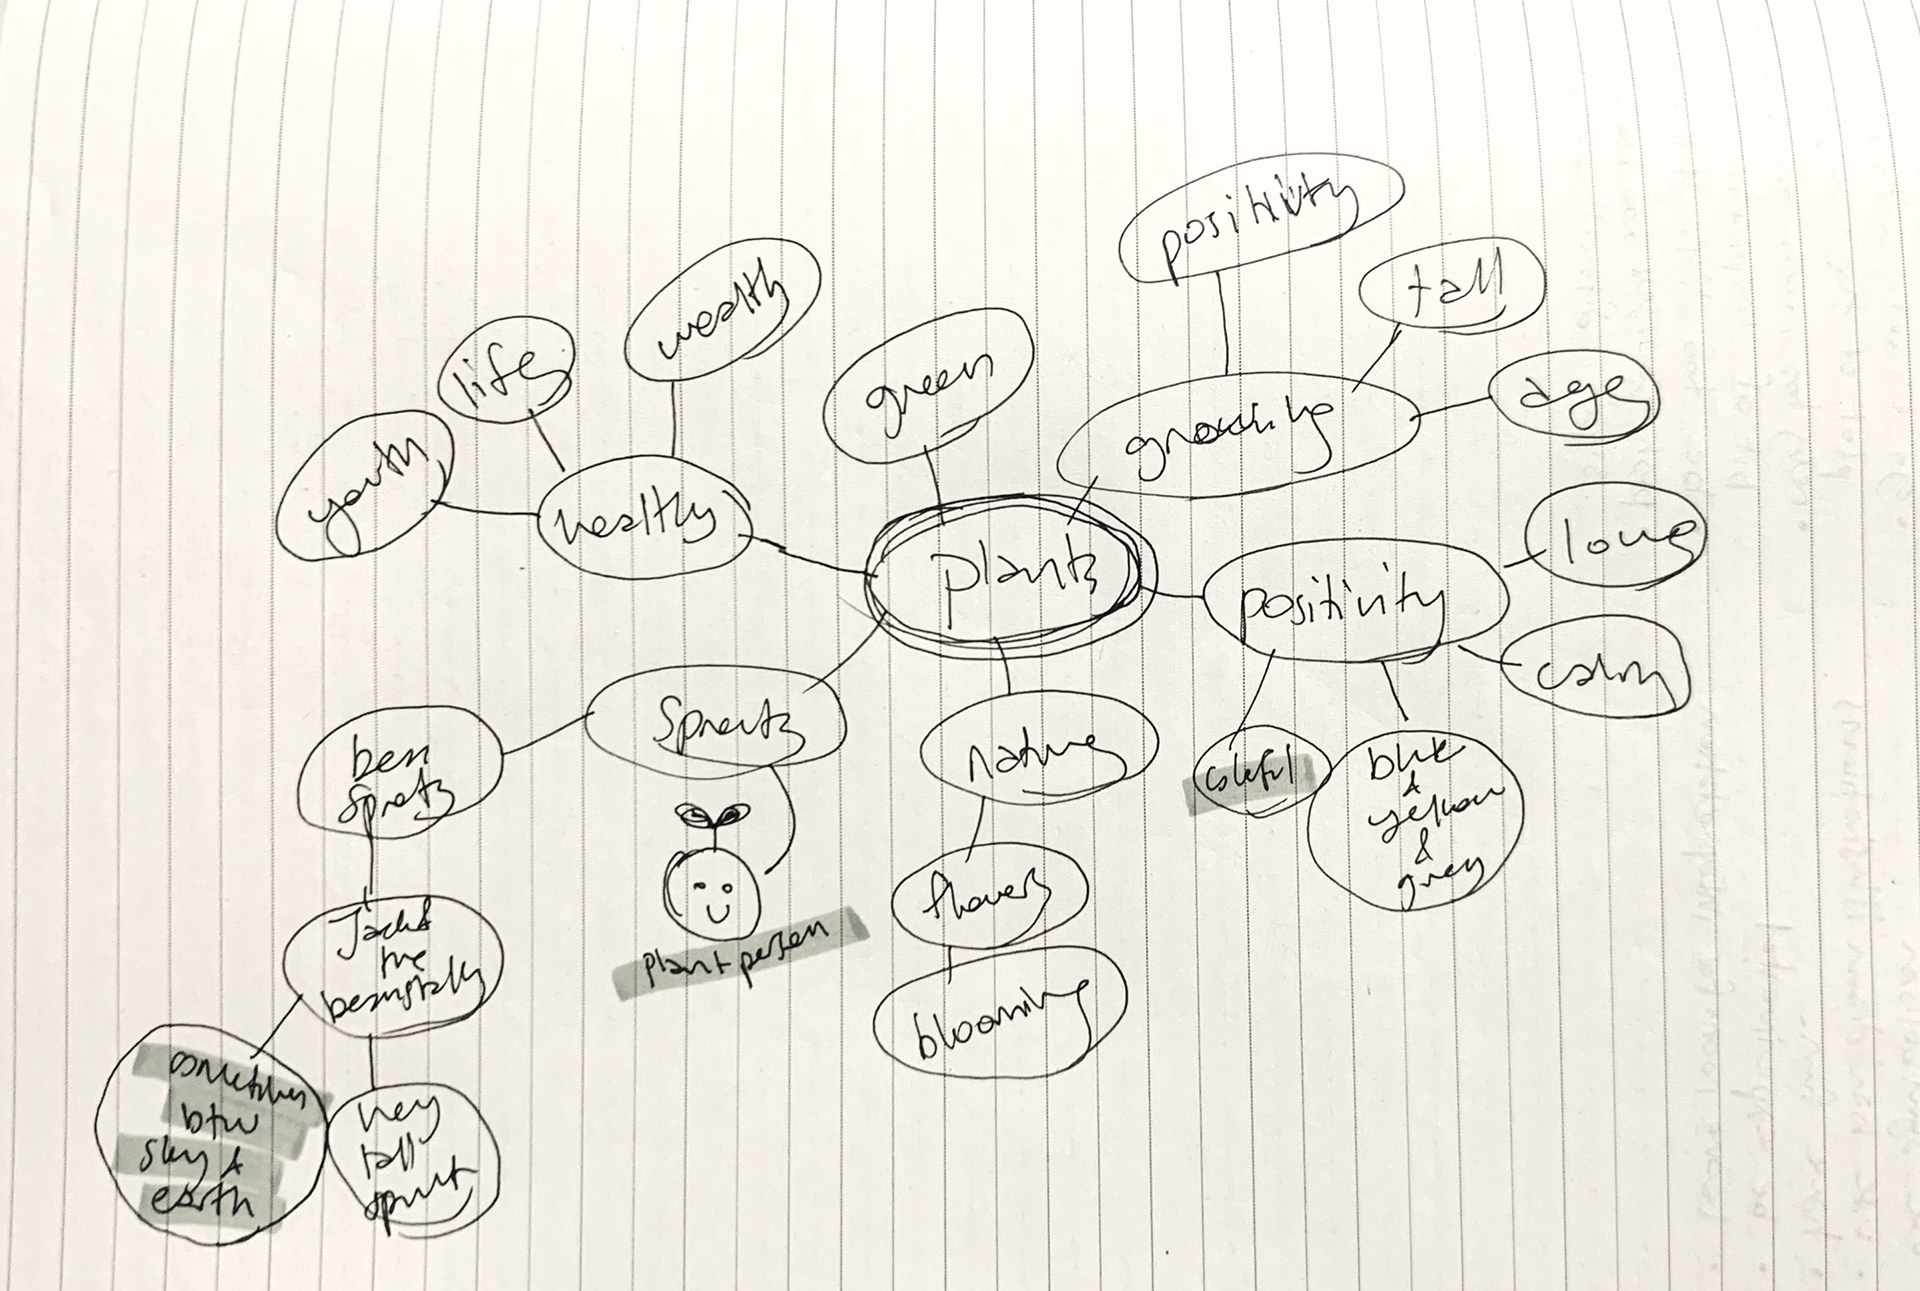 positivity
tall
wealth
life
green
age
growing
youth
healthy
plants
love
positivity
calm
Sprouts
bean
sprouts
nature
colorful
blue
&
yellow
&
grey
flowers
plant person
Jack &
the
beanstalk
blooming
btw
sky &
earth
very
tall
sprout